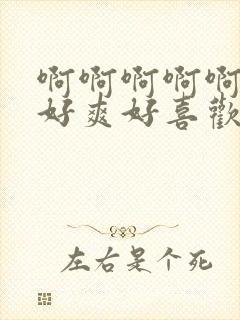 啊啊啊啊啊
好爽好喜歡
左右是个死